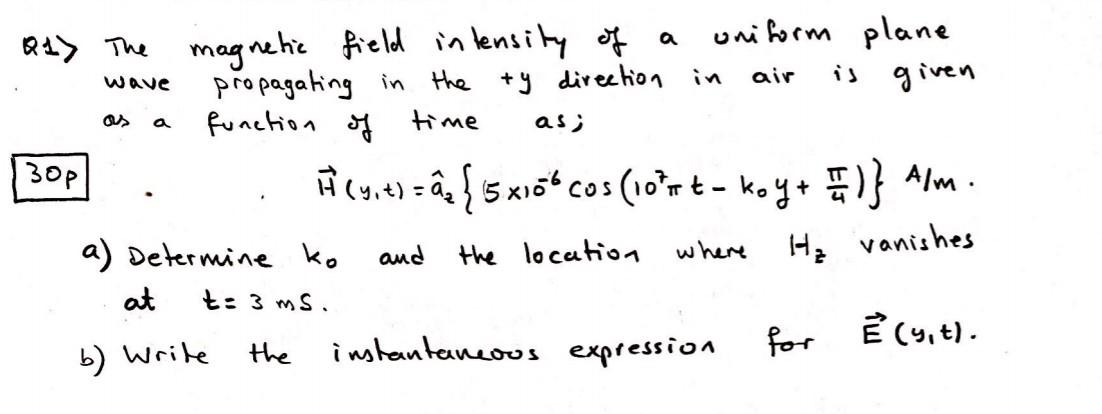 Q1> The magnetic field intensity of a uniform plane
wave propagating in the +y direction in air is given
as a function of time as;
30p
H⃗(y,t) = â_z { 5 x10^-6 cos (10^7 π t - k_0 y + π/4) } A/m.
a) Determine k_0 and the location where H_z vanishes
at t = 3 mS.
b) Write the instantaneous expression for E⃗(y,t).